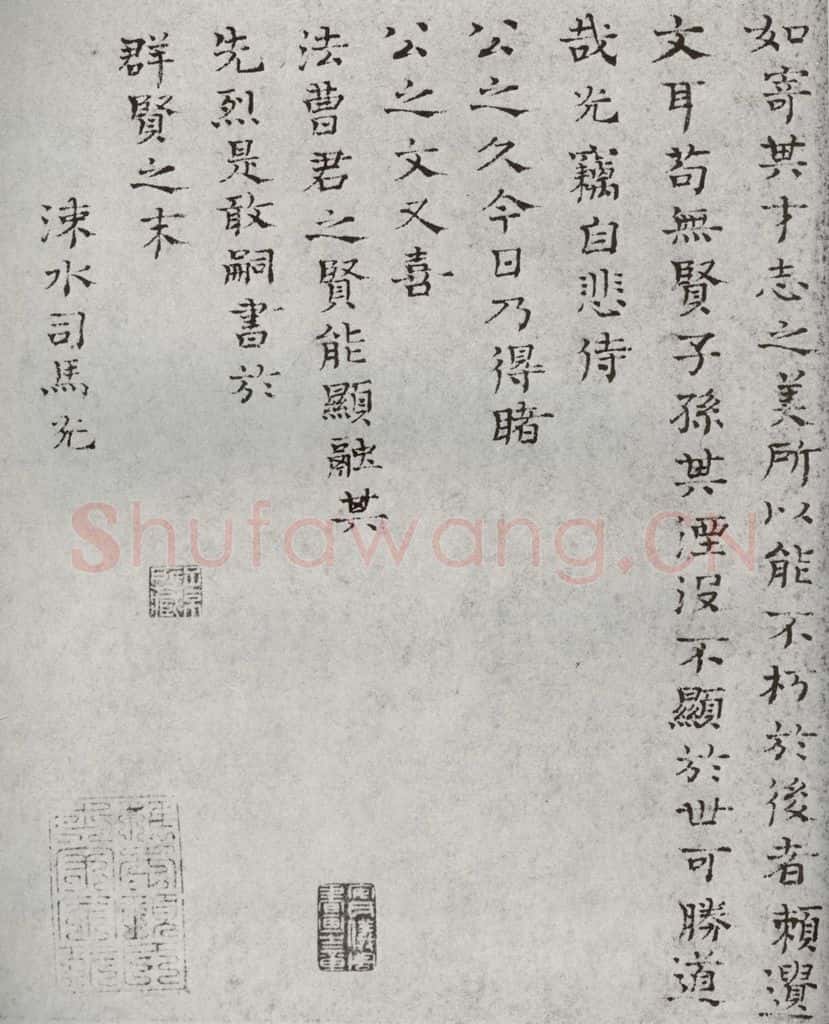 如寄其才志之美所以能不朽於後者賴遺
文耳苟無賢子孫其湮没不顯於世可勝道
哉光竊自悲侍
公之久今日乃得睹
公之文又喜
法曹君之賢能顯融其
先烈是敢嗣書於
群賢之末
涑水司馬光
Shufawang.CN